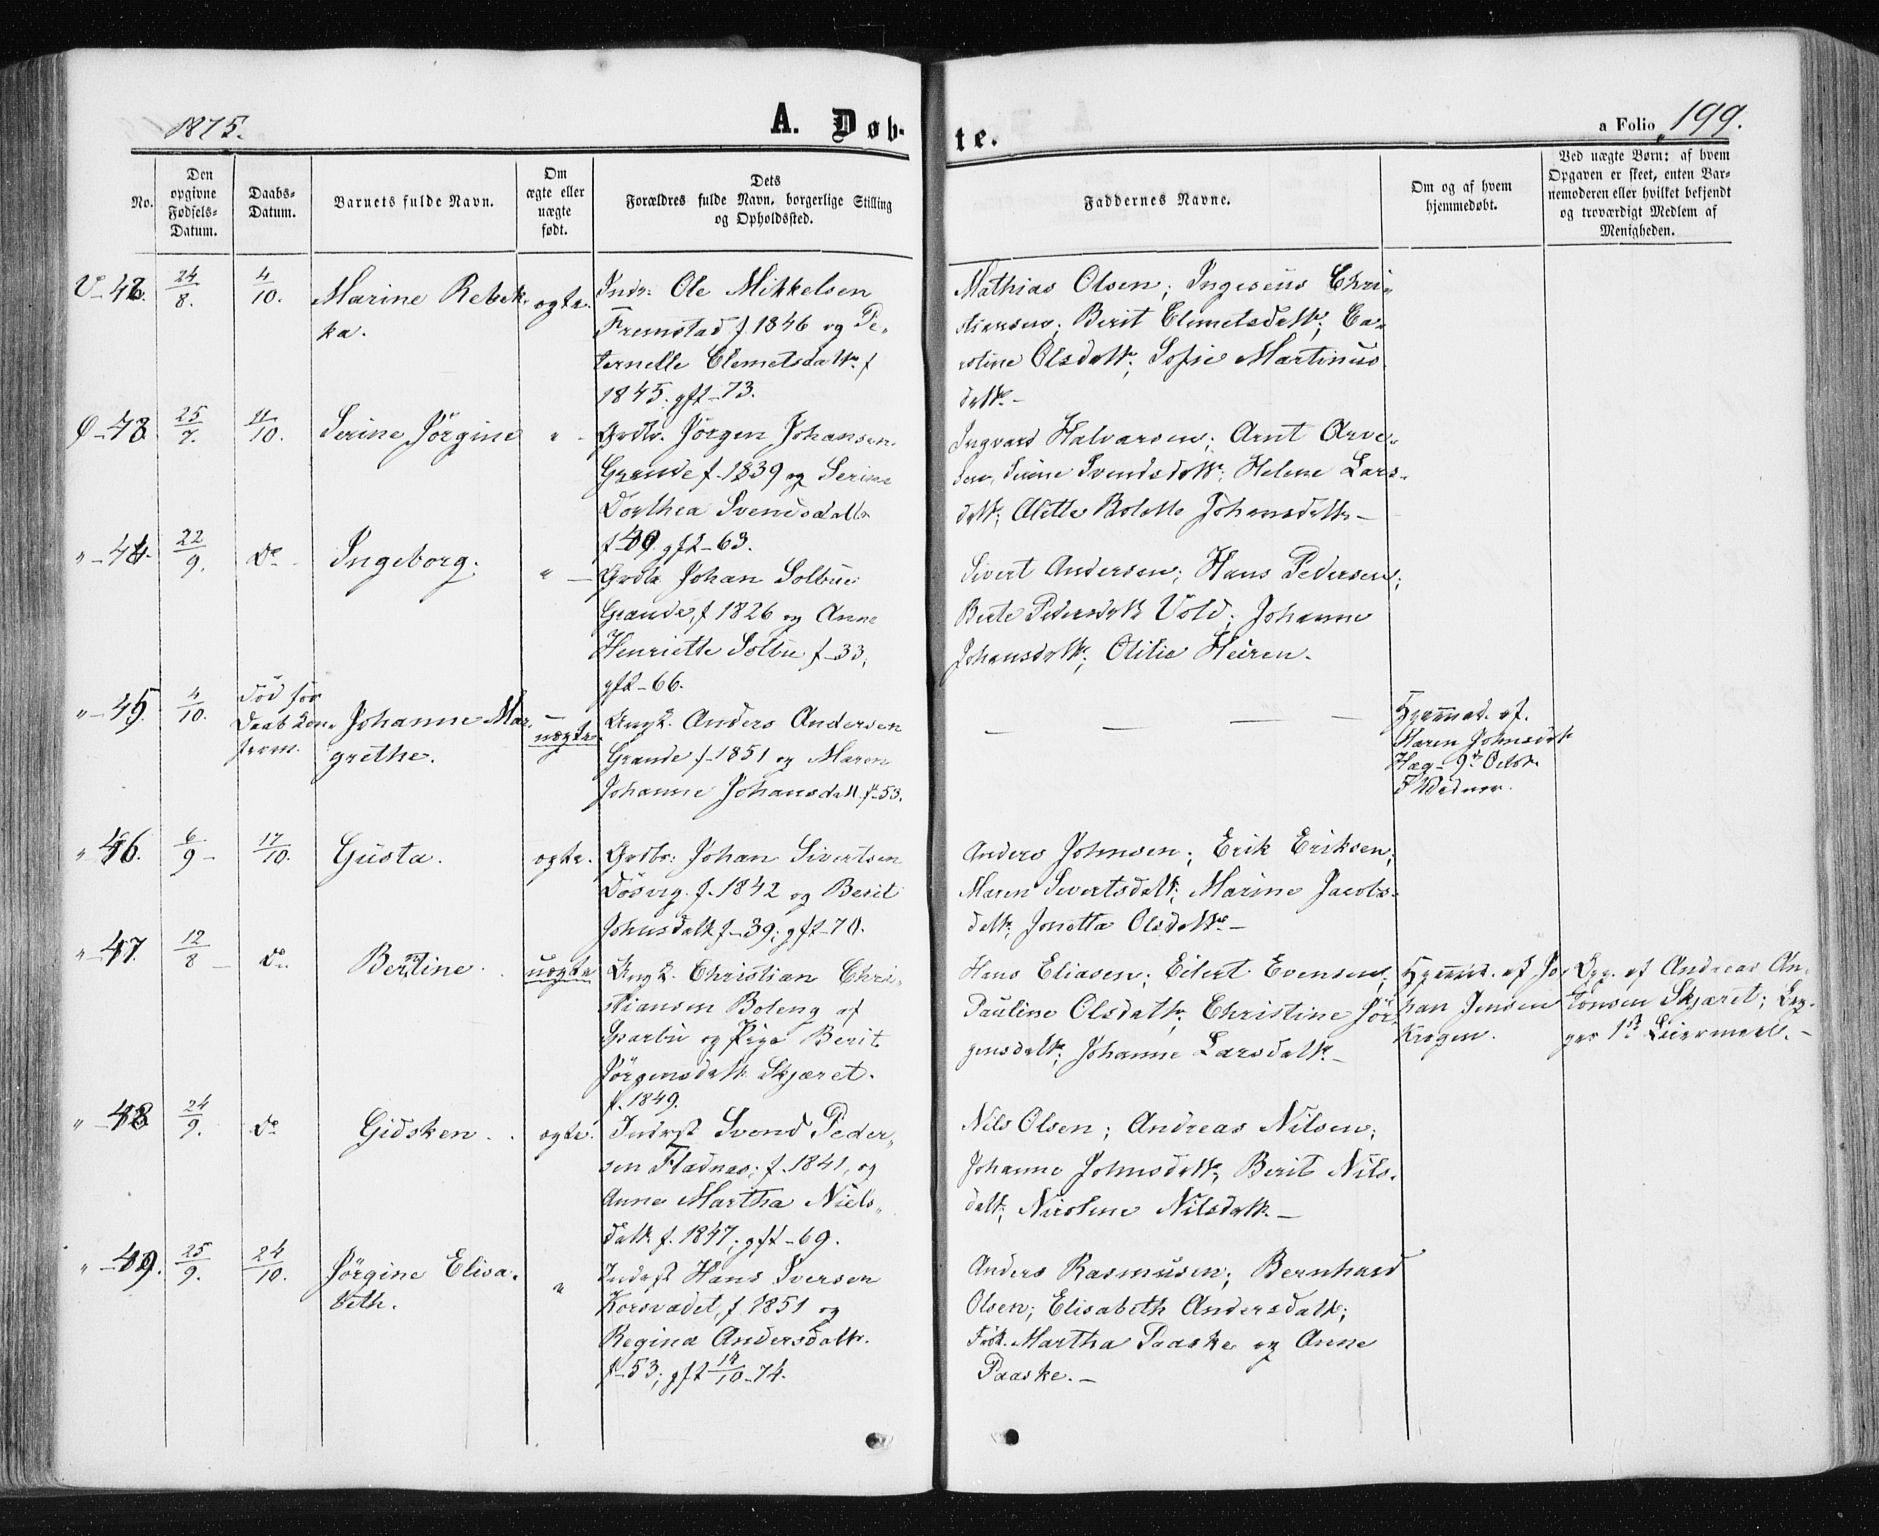 1875.
A. Døb-
te.
a Folio 199.
No.
Den
opgivne
Fødsels-
Datum.
Daabs-
Datum.
Barnets fulde Navn.
Om
ægte eller
uægte
født.
Dets
Forældres fulde Navn, borgerlige Stilling
og Opholdssted.
Faddernes Navne.
Om og af hvem
hjemmedøbt.
Ved uægte Børn: af hvem
Opgaven er skeet, enten Bar-
nemoderen eller hvilket bekjendt
og troværdigt Medlem af
Menigheden.
V-42. 24/8. 4/10. Marine Rebek-
ka.
ægte.
Indr. Ole Mikkelsen
Fremstad f. 1846 og Pe-
ternelle Clemetsdattr. f
1845. gft-73.
Mathias Olsen; Ingeseus Chri-
stiansen; Berit Clemetsdattr; Ca-
roline Olsdattr; Sofie Martinus
dattr.-
Ø-43 25/7. 4/10. Serine Jørgine " -
Grdbr. Jørgen Johansen
Grande f. 1839 og Serine
Dorthea Svendsdattr
f-40. gft-63.
Ingvard Halvarsen; Arnt Arve-
sen, Serine Svendsdattr; Helene Lars-
dattr; Olette Bolette Johansdattr-
"-44. 22/9. Do. Ingeborg. " -
Grdbr Johan Solbue
Grande, f 1826 og Anne
Henriette Solbu f-33,
gft-66.
Sivert Andersen; Hans Pedersen;
Berte Pedersdattr Vold; Johanne
Johansdattr; Otilia Heiren.
"-45. 4/10. Død før
Daab
Johanne Mar-
grethe.
uægte
Ungk. Anders Andersen
Grande f. 1851 og Maren
Johanne Johansdatt. f-53.
- - - -
Hjemmed. af
Maren Johnsdtr
Hæg-9de Octob.
"-46. 6/9 - 17/10. Gusta. ægte.
Grdbr: Johan Sivertsen
Døsvig. f. 1842 og Berit
Johnsdattr f-39; gft-70.
Anders Johnsen; Erik Eriksen;
Maren Sivertsdattr; Marine Jacobs-
dattr; Jonetta Olsdattr.-
"-47. 12/8 - Do. Bertine. uægte
Ungk. Christian Chri-
stiansen Boleng af
Sparbu og Pige Berit
Jørgensdattr Skjæret.
f. 1849.
Hans Eliasen; Edert Evensen;
Pauline Olsdattr; Christine Jør-
gensdattr; Johanne Larsdattr.-
Hjemmed. af Jo-
han Jensen
Krogen.
Opg. af Andreas An-
tonsen Skjæret; Beg-
ges 1ste Leiermaal.-
"-48 24/9. Do Gidsken. ægte.
Inderst Svend Peder-
sen Fladnæs; f. 1841, og
Anne Martha Niels-
datt. f. 1847; gft-69.
Nils Olsen; Andreas Nilsen;
Johanne Johnsdattr; Berit Nils-
datt; Nicoline Nilsdattr.-
"-49. 25/9. 24/10. Jørgine Elisa-
beth.
"
Inderst Hans Iversen
Korsvadet, f. 1851 og
Regina Andersdattr.
f-53; gft 14/10-74.
Anders Rasmusen; Bernhard
Olsen; Elisabeth Andersdattr;
Frøk. Martha Paaske og Anne
Paaske.-